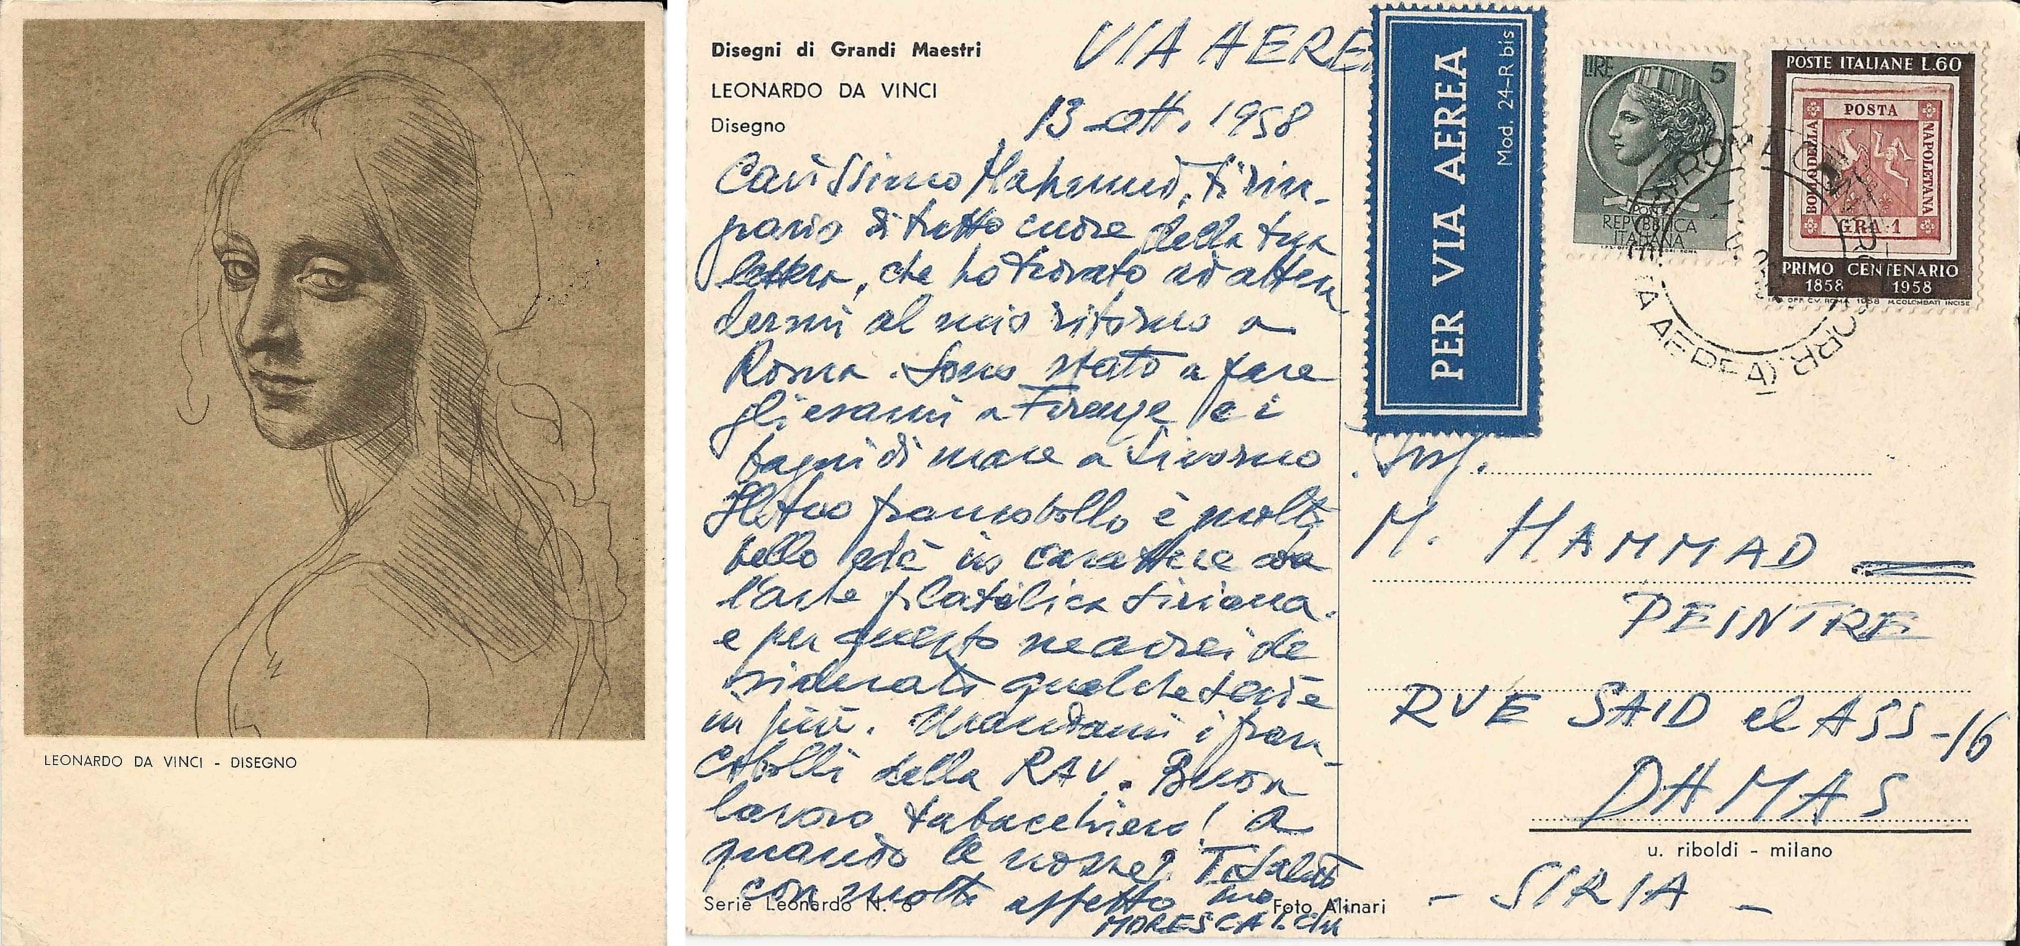 LEONARDO DA VINCI - DISEGNO
Disegni di Grandi Maestri
LEONARDO DA VINCI
Disegno
VIA AEREA
13 ott. 1958
Carissimo Mahmud, ti rin-
grazio di tutto cuore della tua
lettera, che ho trovato ad atten
dermi al mio ritorno a
Roma. Sono stato a fare
gli esami a Firenze e i
bagni di mare a Livorno
Il tuo francobollo è molto
bello ed è in carattere con
l'arte filatelica siriana.
e per questo ne avrei de
siderato qualche serie
in più. Mandami i fran-
cobolli della RAU. Buon
lavoro tabacchiero! A
quando le nozze? Ti saluto
con molto affetto tuo
MORESCALCHI
Serie Leonardo N. 6
Foto Alinari
PER VIA AEREA
Mod. 24-R bis
LIRE 5
REPVBBLICA
ITALIANA
POSTE ITALIANE L.60
POSTA
BOLLO DELLA
NAPOLETANA
GRA 1
PRIMO CENTENARIO
1858 1958
OFF. C.V. ROMA 1958 M.COLOMBATI INCISE
ROMA
CORR.
AEREA)
M. HAMMAD
PEINTRE
RUE SAID el ASS-16
DAMAS
u. riboldi - milano
- SIRIA -